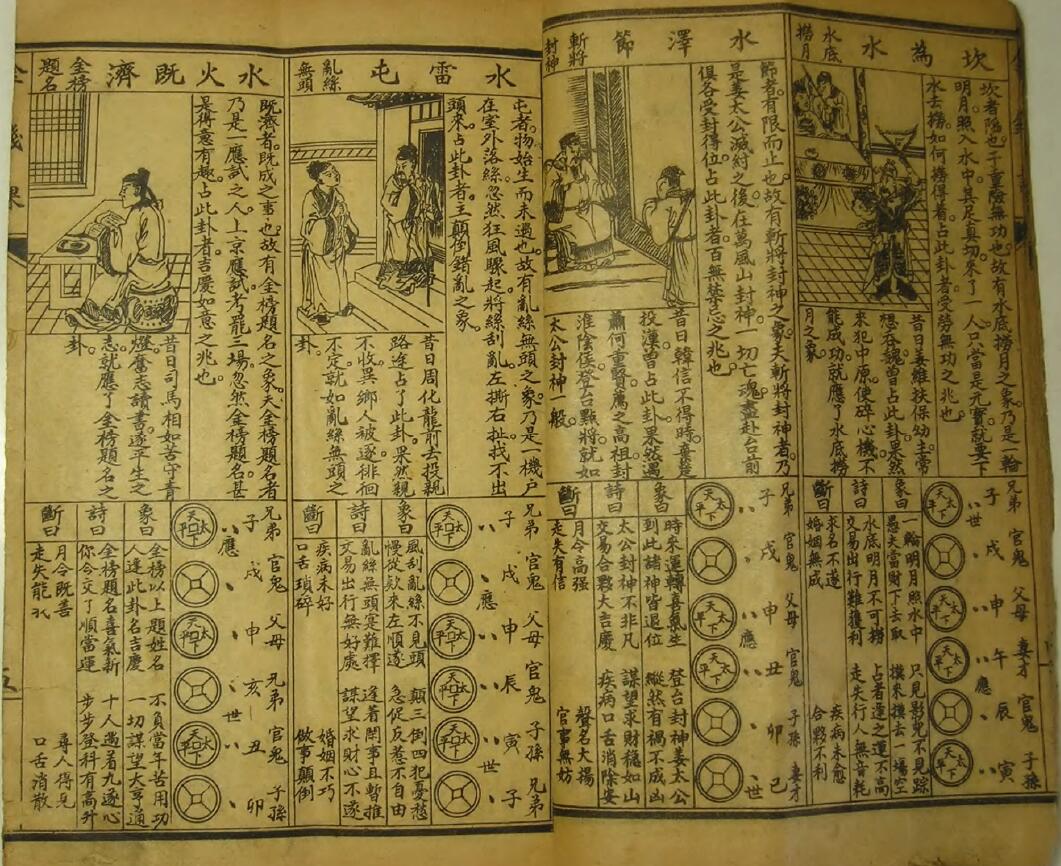 坎為水
水底
撈月
坎者陷也千重險無功也故有水底撈月之象乃是一輪
明月照入水中其足真切來了一人只當是元寶就要下
水去撈如何撈得着占此卦者受勞無功之兆也
昔日姜維扶保幼主常
想吞魏曾占此卦果然
來犯中原使碎心機不
能成功就應了水底撈
月之象
兄弟 官鬼 父母 妻才 官鬼 子孫
子 戌 申 午 辰 寅
世 應
天下太平
象曰
一輪明月照水中 只見影兒不見踪
愚夫當財下去取 摸來摸去一場空
詩曰
水底明月不可撈 占者逢之運不高
交易出行難獲利 走失行人無音耗
斷曰
求名不遂 疾病未愈
婚姻無成 合夥不利
水澤節
斬將
封神
節者有限而止也故有斬將封神之象夫斬將封神者乃
是姜太公滅紂之後在萬風山封神一切亡魂盡赴台前
俱各受封得位占此卦者百無禁忌之兆也
昔日韓信不得時棄楚
投漢曾占此卦果然遇
蕭何重賢薦之高祖封
淮陰侯登台點將就如
太公封神一般
兄弟 官鬼 父母 官鬼 子孫 妻才
子 戌 申 丑 卯 巳
應 世
天下太平
象曰
時來運轉喜氣生 登台封神姜太公
到此諸神皆退位 縱然有禍不成凶
詩曰
太公封神不非凡 謀望求財穩如山
交易合夥大吉慶 疾病口舌消除安
斷曰
月令高强 聲名大揚
走失有信 官事無妨
水雷屯
亂絲
無頭
屯者物始生而未遇也故有亂絲無頭之象乃是一機户
在室外落絲忽然狂風驟起將絲刮亂左撕右扯找不出
頭來占此卦者主顛倒錯亂之象
昔日周化龍前去投親
路途占了此卦果然親
不收異鄉人被逐徘徊
不定就如亂絲無頭之
卦
兄弟 官鬼 父母 官鬼 子孫 兄弟
子 戌 申 辰 寅 子
應 世
天下太平
象曰
風刮亂絲不見頭 顛三倒四犯憂愁
慢從款來左順遂 急促反惹不自由
詩曰
亂絲無頭寔難擇 逢着閑事且暫推
交易出行無好處 謀望求財心不遂
斷曰
疾病未好 婚姻不巧
口舌瑣碎 做事顛倒
水火既濟
金榜
題名
既濟者既成之事也故有金榜題名之象夫金榜題名者
乃是一應試之人上京應試考罷三場忽然金榜題名甚
是得意有趣占此卦者吉慶如意之兆也
昔日司馬相如苦守青
燈奮志讀書遂平生之
志就應了金榜題名之
卦
兄弟 官鬼 父母 兄弟 官鬼 子孫
子 戌 申 亥 丑 卯
應 世
天下太平
象曰
金榜以上題姓名 不負當年苦用功
人逢此卦名吉慶 一切謀望大亨通
詩曰
金榜題名喜氣新 十人遇着九遂心
你今交了順當運 步步登科有高升
斷曰
月令既善 尋人得見
走失能找 口舌消散